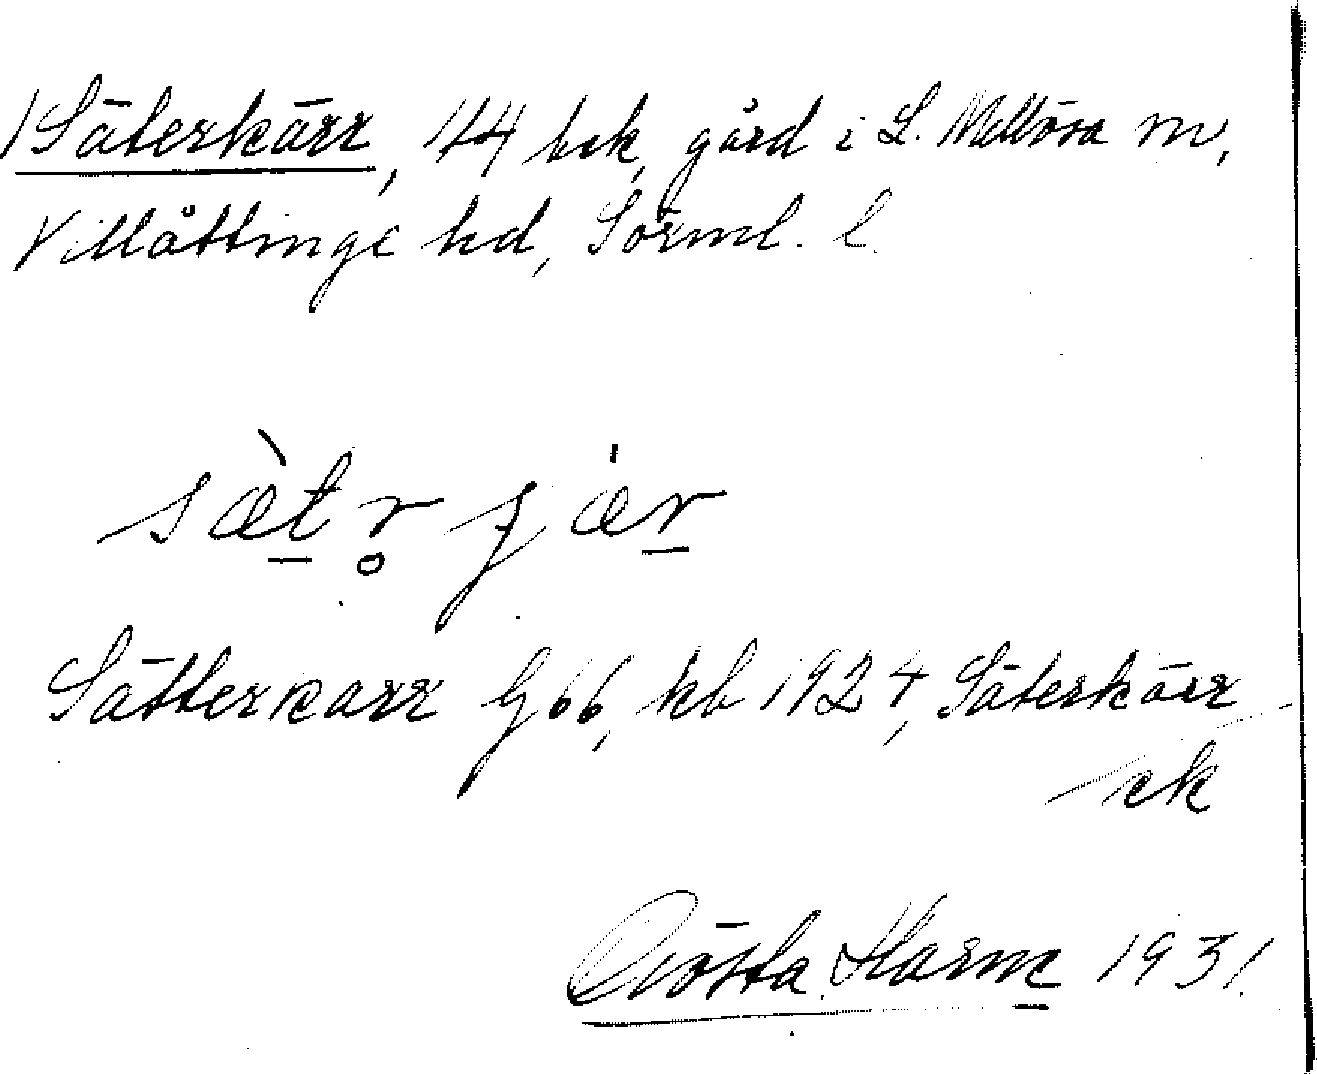 1 Säterkärr, 1/4 frk, gård i L. Mellösa sn,
Villåttinge hd, Sörml. l.
sæ̀tr̥jæ̍r
Sätterkarr G 66, kb 1924, Säterkärr
ek
Gösta Harm 1931.